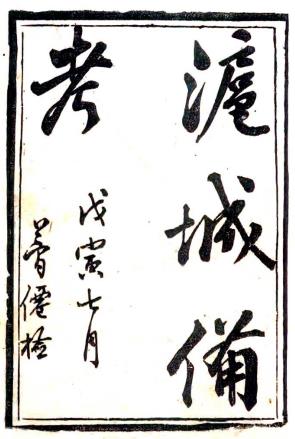 滬城備
考
戊寅七月
僊